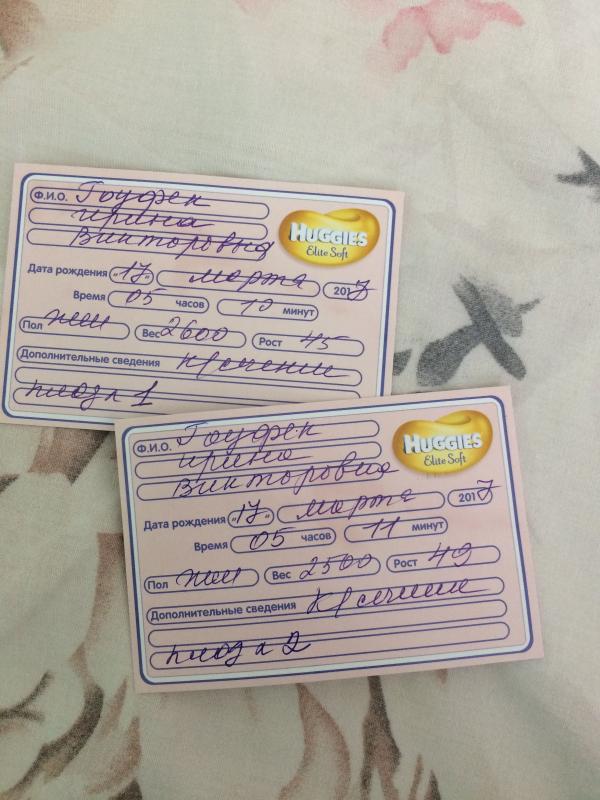 Ф.И.О. Гоуфек
Ирина
Викторовна
HUGGIES
Elite Soft
Дата рождения «17» марта 2017
Время 05 часов 10 минут
Пол жен Вес 2600 Рост 45
Дополнительные сведения Кр сечение
плод л 1
Ф.И.О. Гоуфек
Ирина
Викторовна
HUGGIES
Elite Soft
Дата рождения «17» марта 2017
Время 05 часов 11 минут
Пол жен Вес 2500 Рост 49
Дополнительные сведения Кр сечение
плод л 2